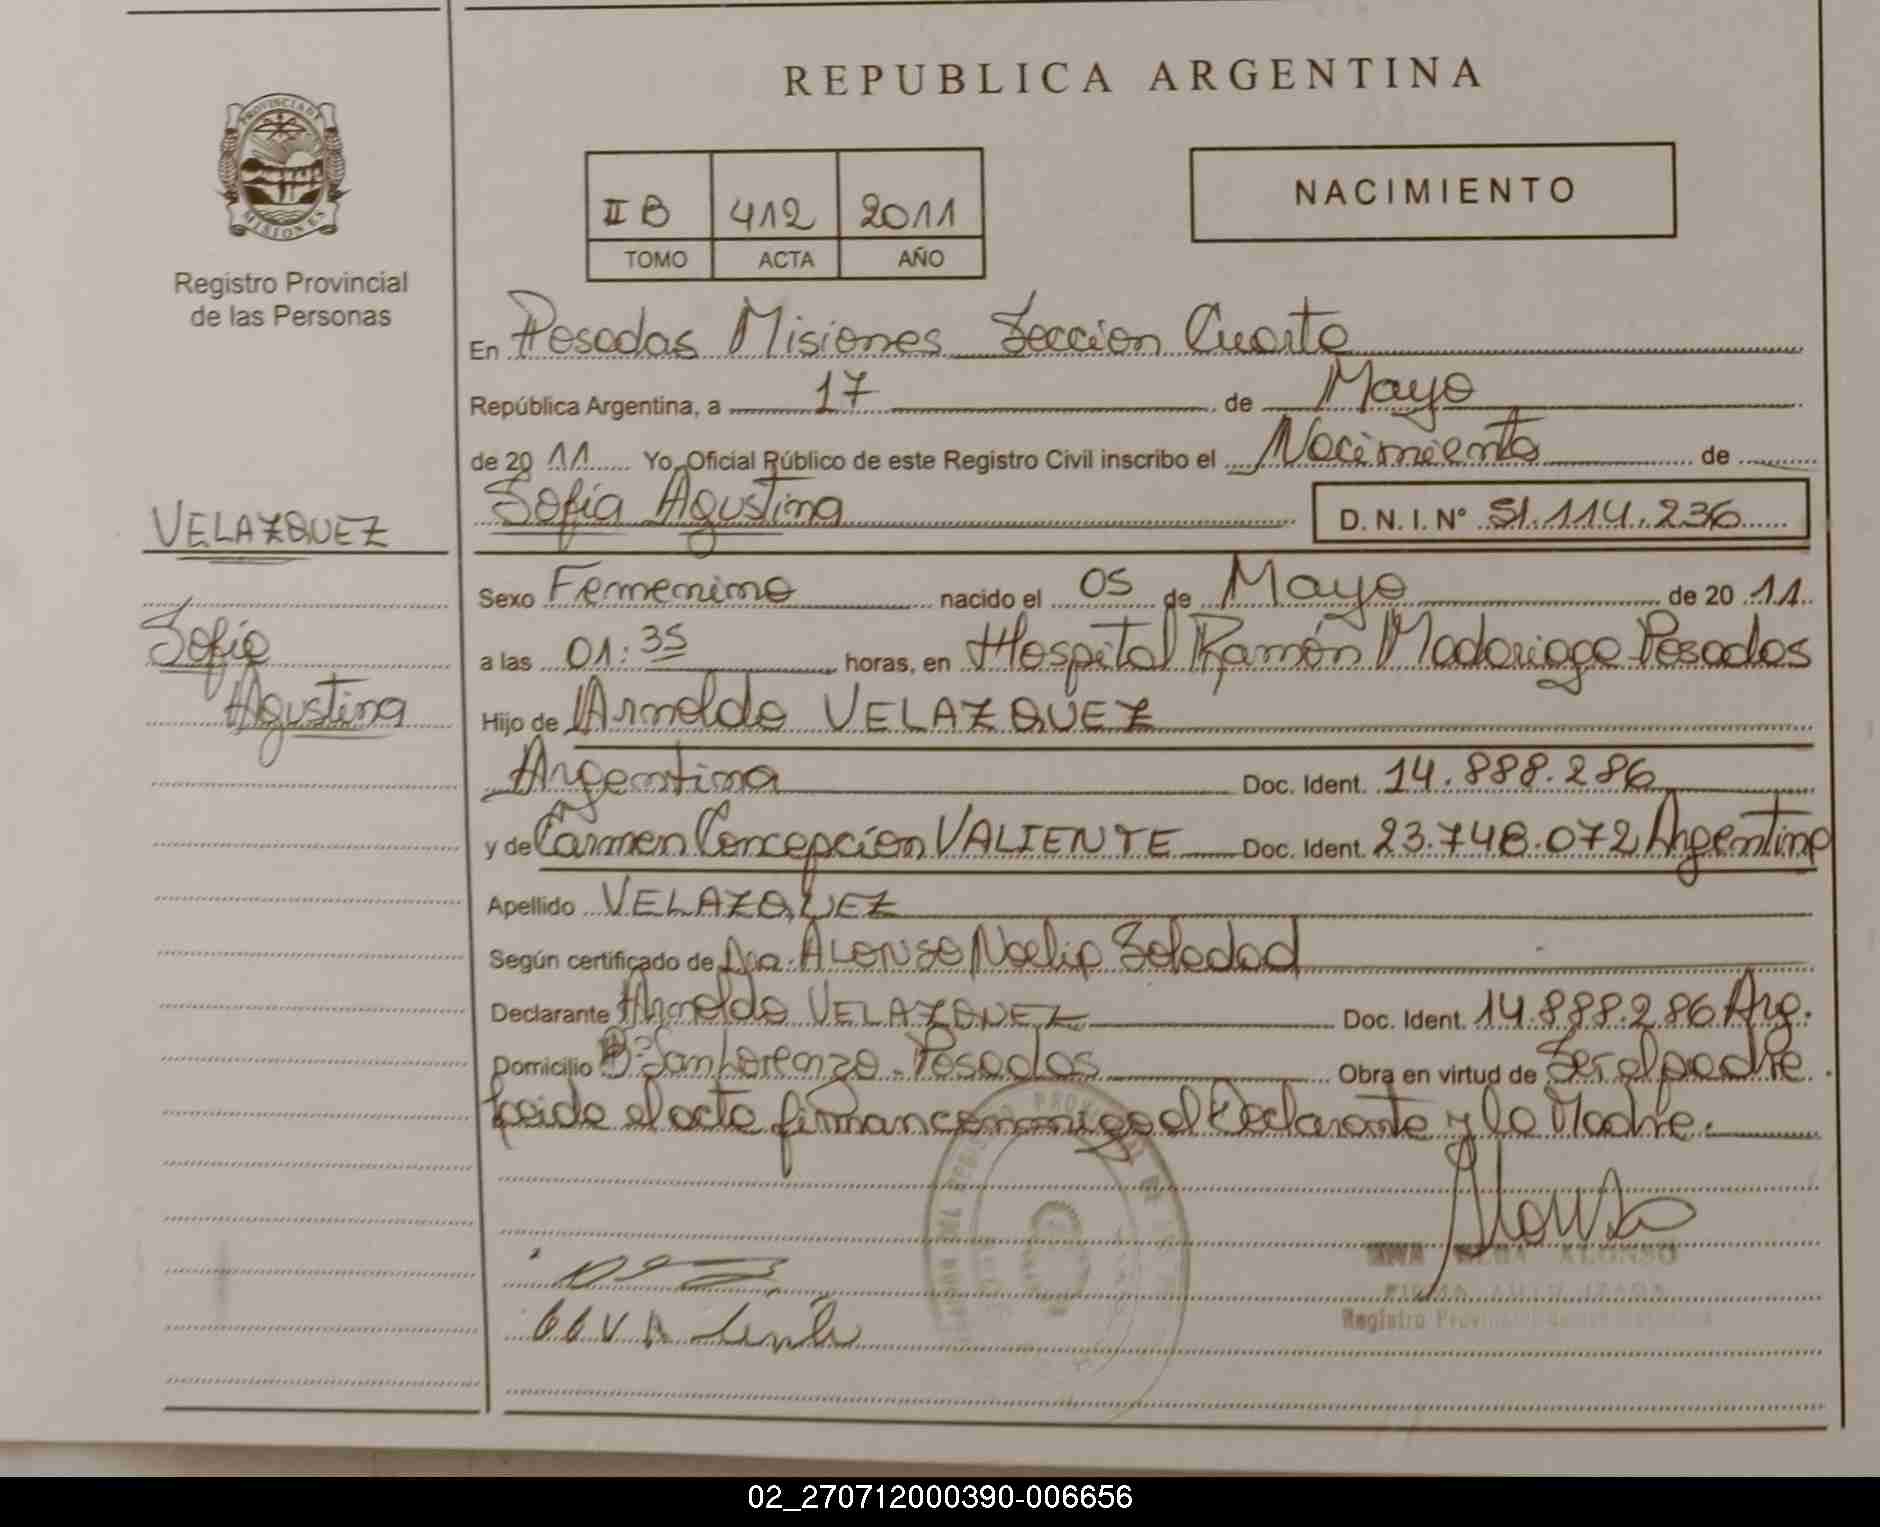 REPUBLICA ARGENTINA
PROVINCIA DE
MISIONES
Registro Provincial
de las Personas
II B 412 2011
TOMO ACTA AÑO
NACIMIENTO
En Posadas Misiones Seccion Cuarta
República Argentina, a 17 de Mayo
de 2011 Yo, Oficial Público de este Registro Civil inscribo el Nacimiento de
Sofia Agustina D.N.I. N° 51.114.236
VELAZQUEZ
Sofia
Agustina
Sexo Femenino nacido el 05 de Mayo de 2011
a las 01:35 horas, en Hospital Ramón Madariaga Posadas
Hijo de Arnoldo VELAZQUEZ
Argentina Doc. Ident. 14.888.286
y de Carmen Concepción VALIENTE Doc. Ident. 23.748.072 Argentina
Apellido VELAZQUEZ
Según certificado de Dra. ALONSO Noelia Soledad
Declarante Arnoldo VELAZQUEZ Doc. Ident. 14.888.286 Arg.
Domicilio B° San Lorenzo - Posadas Obra en virtud de Ser el padre.
Leida el acta firman conmigo el Declarante y la Madre.
ALONSO
Registro
02_270712000390-006656